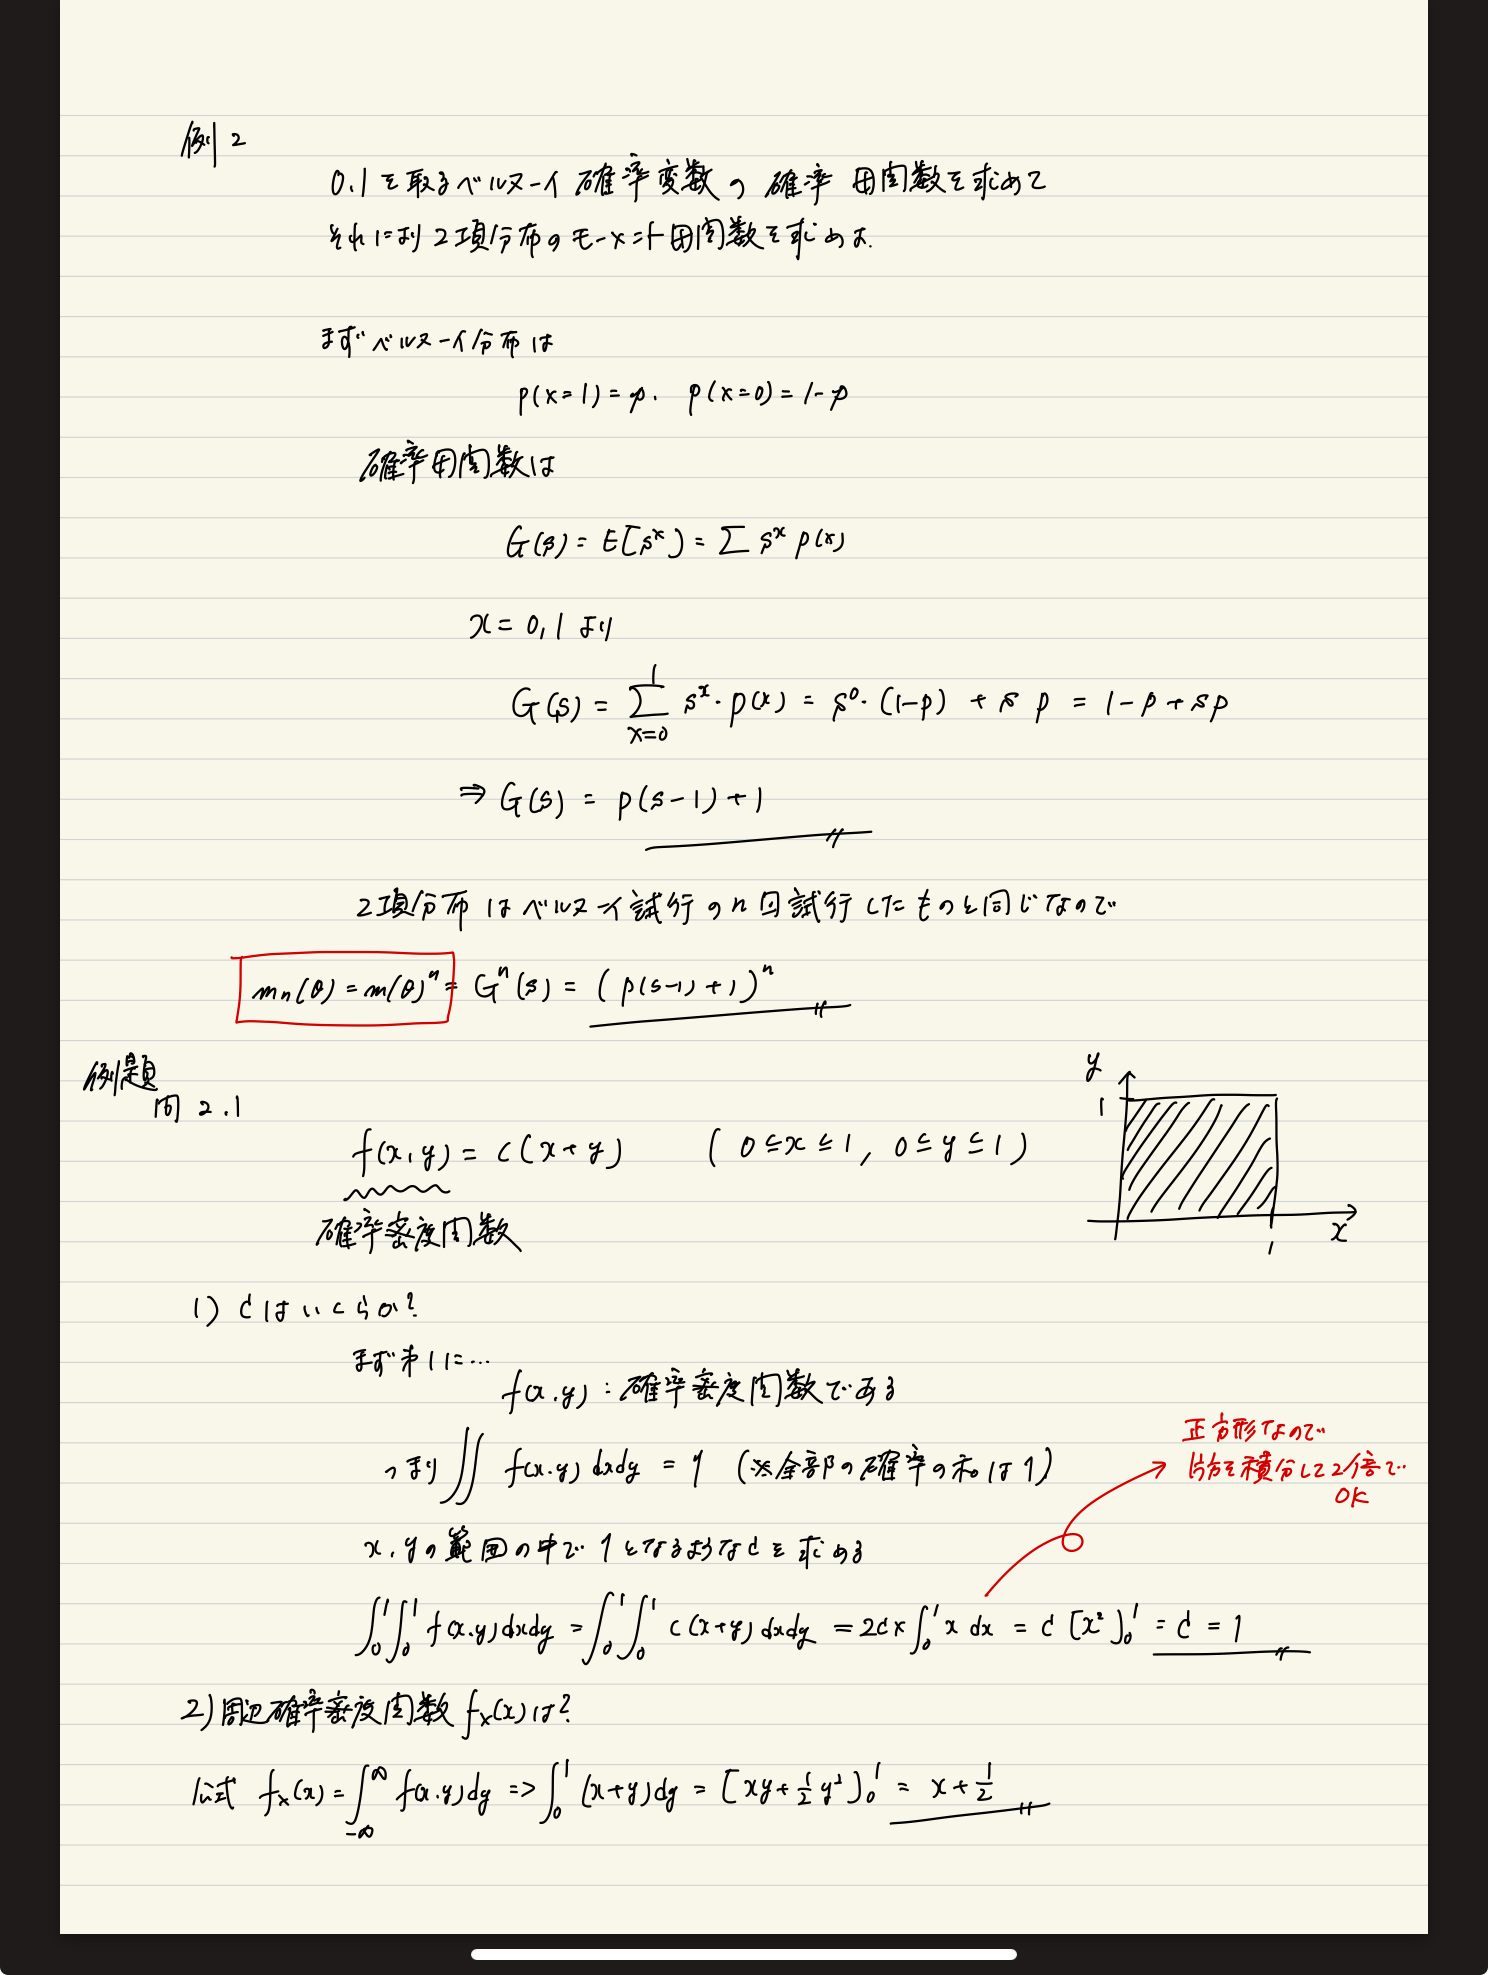 例2
0,1を取るベルヌーイ確率変数の確率母関数を求めて
それにより2項分布のモーメント母関数を求めよ.
まずベルヌーイ分布は
p(x=1)=p. p(x=0)=1-p
確率母関数は
G(s)=E[s^x]=∑ s^x p(x)
x=0,1より
G(s)=∑_{x=0}^{1} s^x・p(x)=s^0・(1-p)+s p=1-p+sp
⇒ G(s)=p(s-1)+1
2項分布はベルヌーイ試行のn回試行したものと同じなので
m_n(θ)=m(θ)^n=G^n(s)=(p(s-1)+1)^n
例題
問2.1
y
1
f(x,y)=c(x+y) (0≦x≦1, 0≦y≦1)
x
1
確率密度関数
1) cはいくらか?
まず第1に…
f(x.y):確率密度関数である
正方形なので
つまり∬f(x.y)dxdy=1 (※全部の確率の和は1)
片方を積分して2倍で
OK
x.yの範囲の中で1となるようなcを求める
∫_0^1∫_0^1 f(x.y)dxdy=∫_0^1∫_0^1 c(x+y)dxdy=2c×∫_0^1 x dx=c[x^2]_0^1=c=1
2)周辺確率密度関数f_x(x)は?
公式 f_x(x)=∫_{-∞}^{∞} f(x.y)dy=>∫_0^1(x+y)dy=[xy+1/2 y^2]_0^1=x+1/2